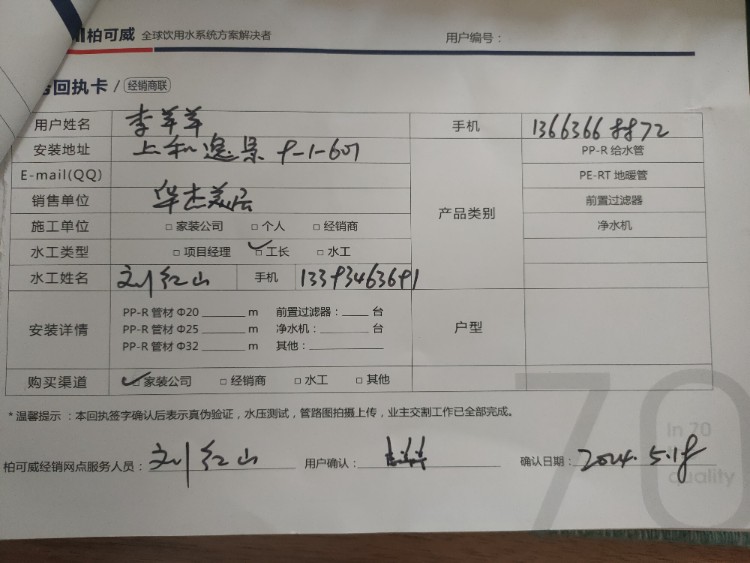 柏可威 全球饮用水系统方案解决者 用户编号：
回执卡 / 经销商联
用户姓名 李羊羊 手机 13663668872
安装地址 上和逸景 8-1-601 产品类别 PP-R 给水管
E-mail(QQ) PE-RT 地暖管
销售单位 华杰美居 前置过滤器
施工单位 □ 家装公司 □ 个人 □ 经销商 净水机
水工类型 □ 项目经理 ☑ 工长 □ 水工
水工姓名 刘红山 手机 13393463691
安装详情 户型
PP-R 管材 Φ20 ______ m 前置过滤器：____ 台
PP-R 管材 Φ25 ______ m 净水机：____ 台
PP-R 管材 Φ32 ______ m 其他：______
购买渠道 ☑ 家装公司 □ 经销商 □ 水工 □ 其他
*温馨提示 ：本回执签字确认后表示真伪验证，水压测试，管路图拍摄上传，业主交割工作已全部完成。
柏可威经销网点服务人员：刘红山 用户确认： 确认日期：2024.5.18
70
In 70
quality